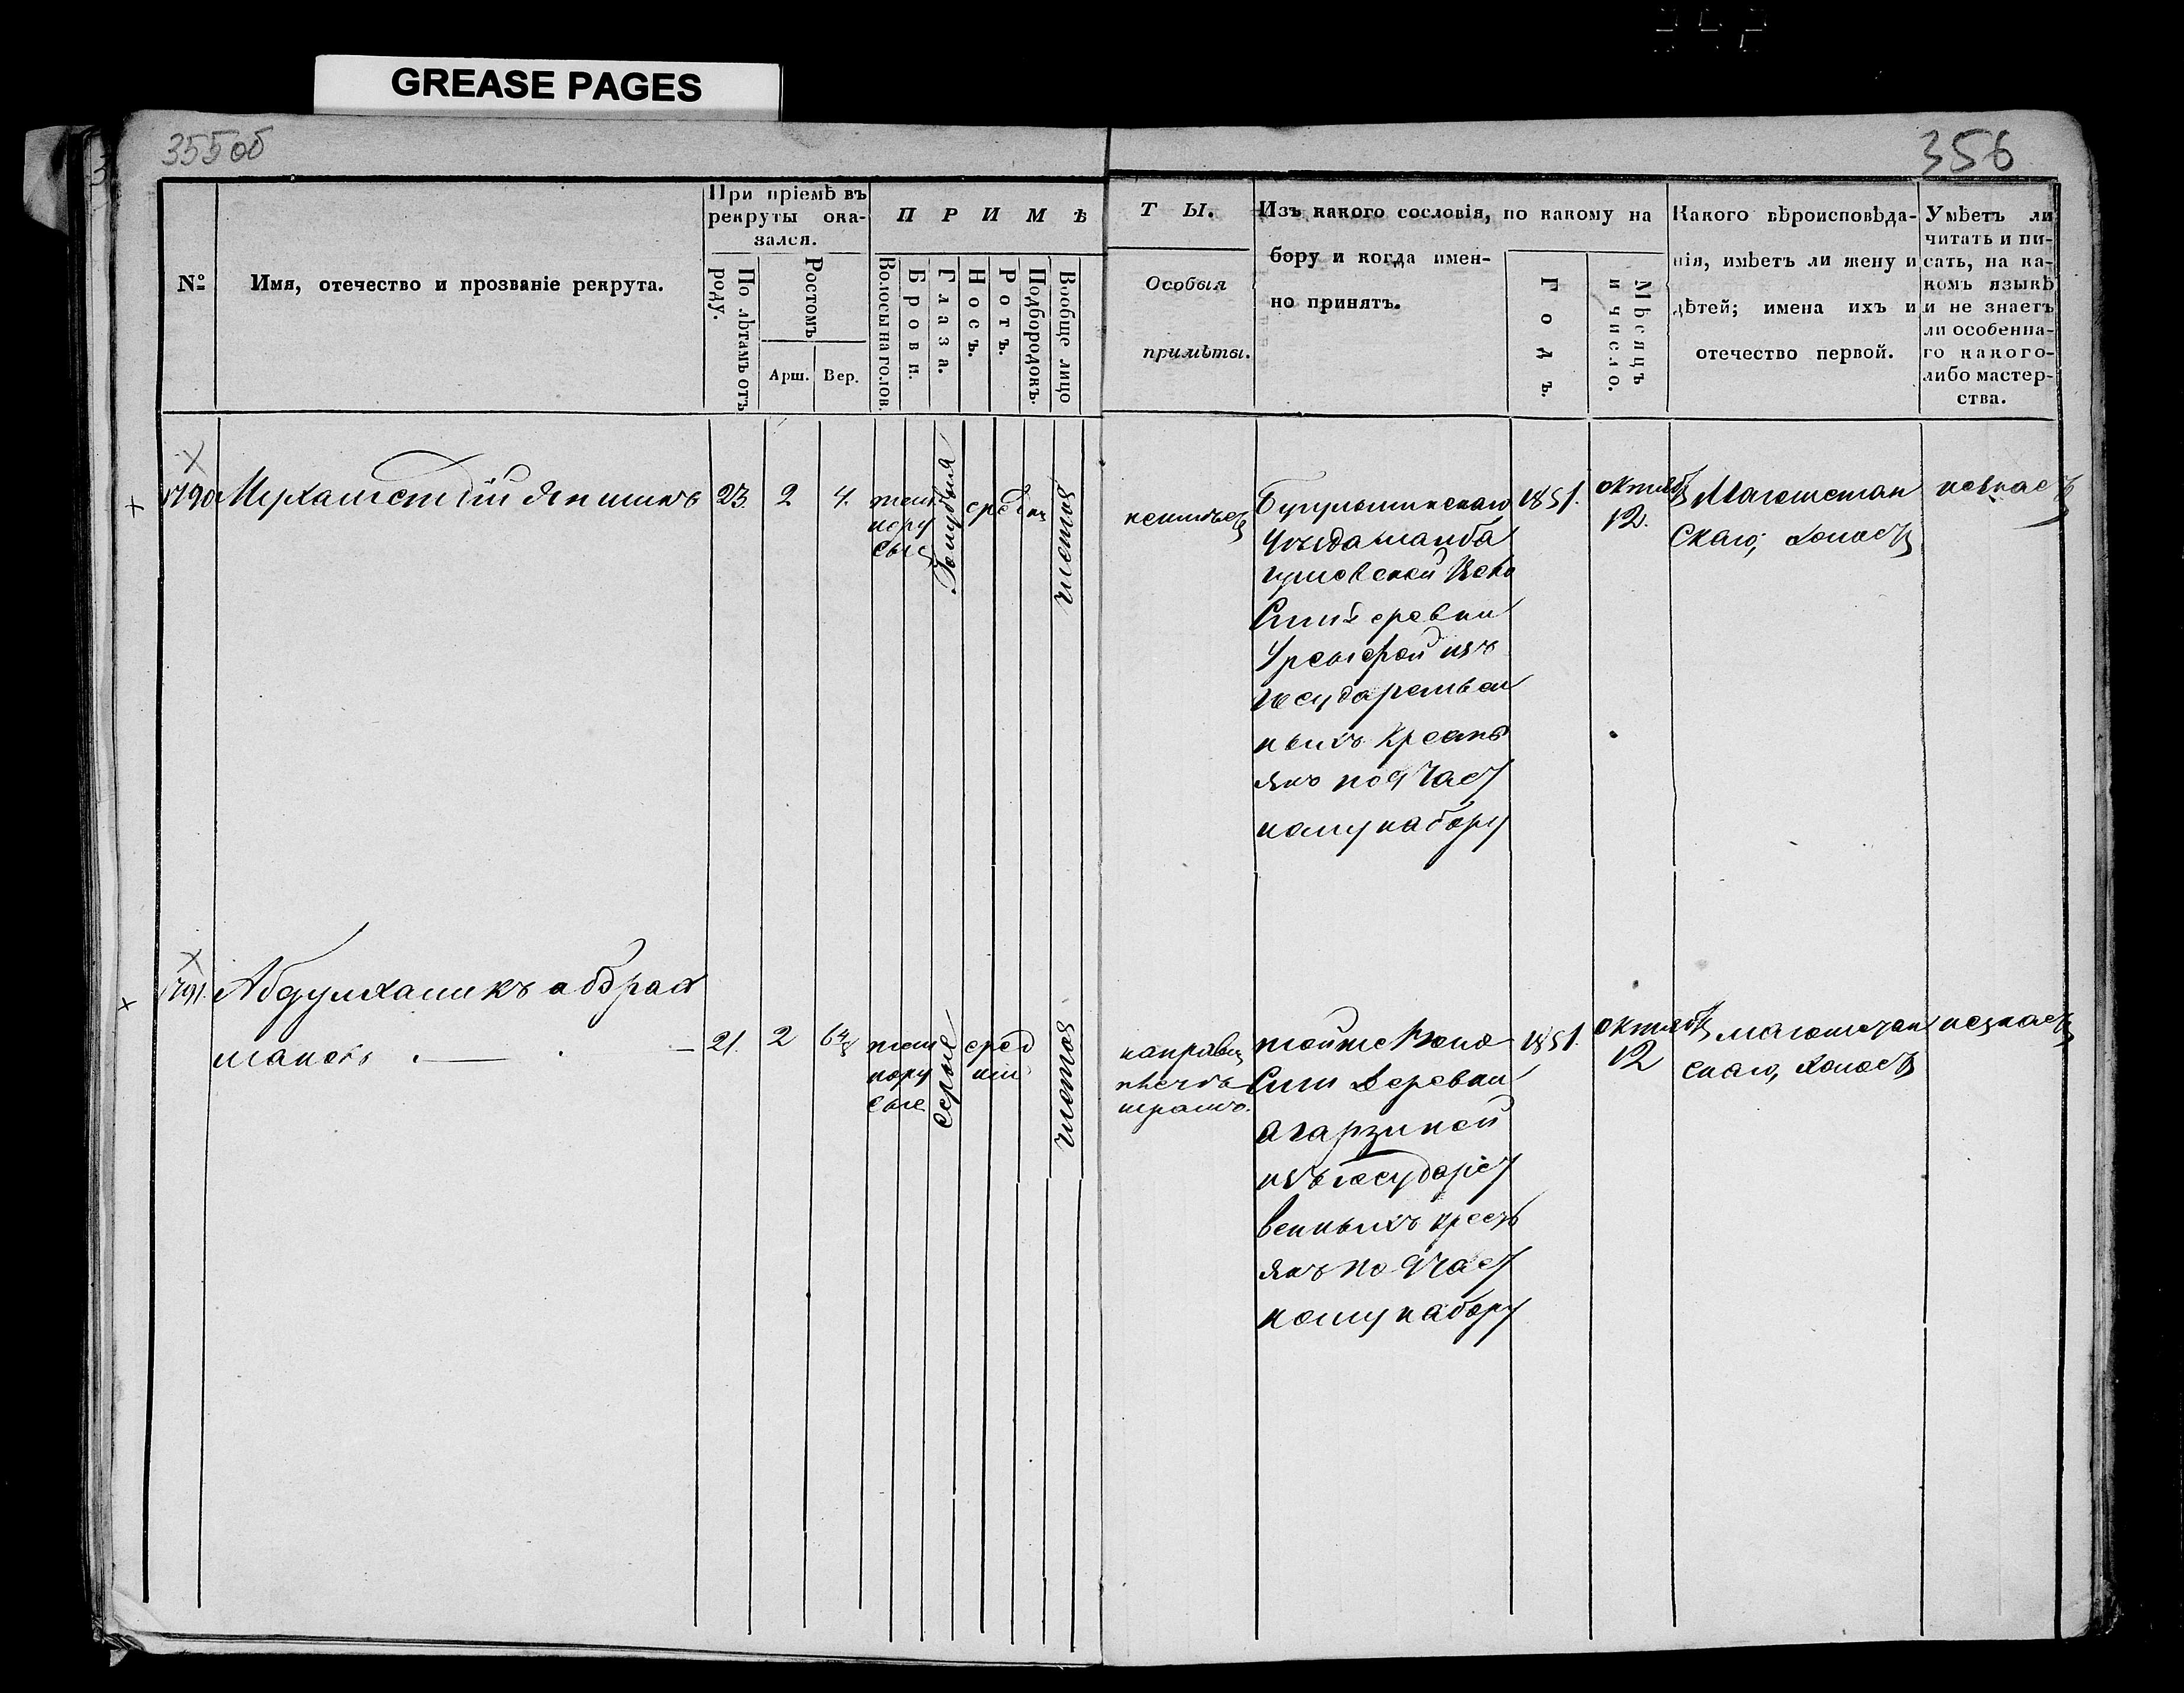 GREASE PAGES
355 об
356
№
Имя, отечество и прозваніе рекрута.
При пріемѣ въ
рекруты ока-
зался.
По лѣтамъ отъ
роду.
Ростомъ
Арш.
Вер.
ПРИМѢ
Волосы на голов.
Брови.
Глаза.
Носъ.
Ротъ.
Подбородокъ.
Вообще лицо
ТЫ.
Особыя
примѣты.
Изъ какого сословія, по какому на
бору и когда имен-
но принятъ.
Годъ.
Мѣсяцъ
и число.
Какого вѣроисповѣда-
нія, имѣетъ ли жену и
дѣтей; имена ихъ и
отечество первой.
Умѣетъ ли
читать и пи-
сать, на ка-
комъ языкѣ
и не знаетъ
ли особенна-
го какого-
либо мастер-
ства.
1790
23.
2
4.
темн
нору
сые
Голубыя
средни
чистоя
неимѣет
Бугульминскаго
Уѣзда
деревни
изъ
государствен
ныхъ крестъ
янъ по 9 част
ному набору
1851.
октяб
12.
Магометан
скаго, холост
незнает
1791.
Абдулхаликъ абдрах
мановъ
21.
2
6 4/8
темн
нору
сые
серые
сред
ніи
чистоя
направ
плечѣ
шрамъ.
тойже
деревни
изъ государст
венныхъ крест
янъ по 9 част
ному набору
1851.
октяб
12
магометан
скаго, холост
незнает